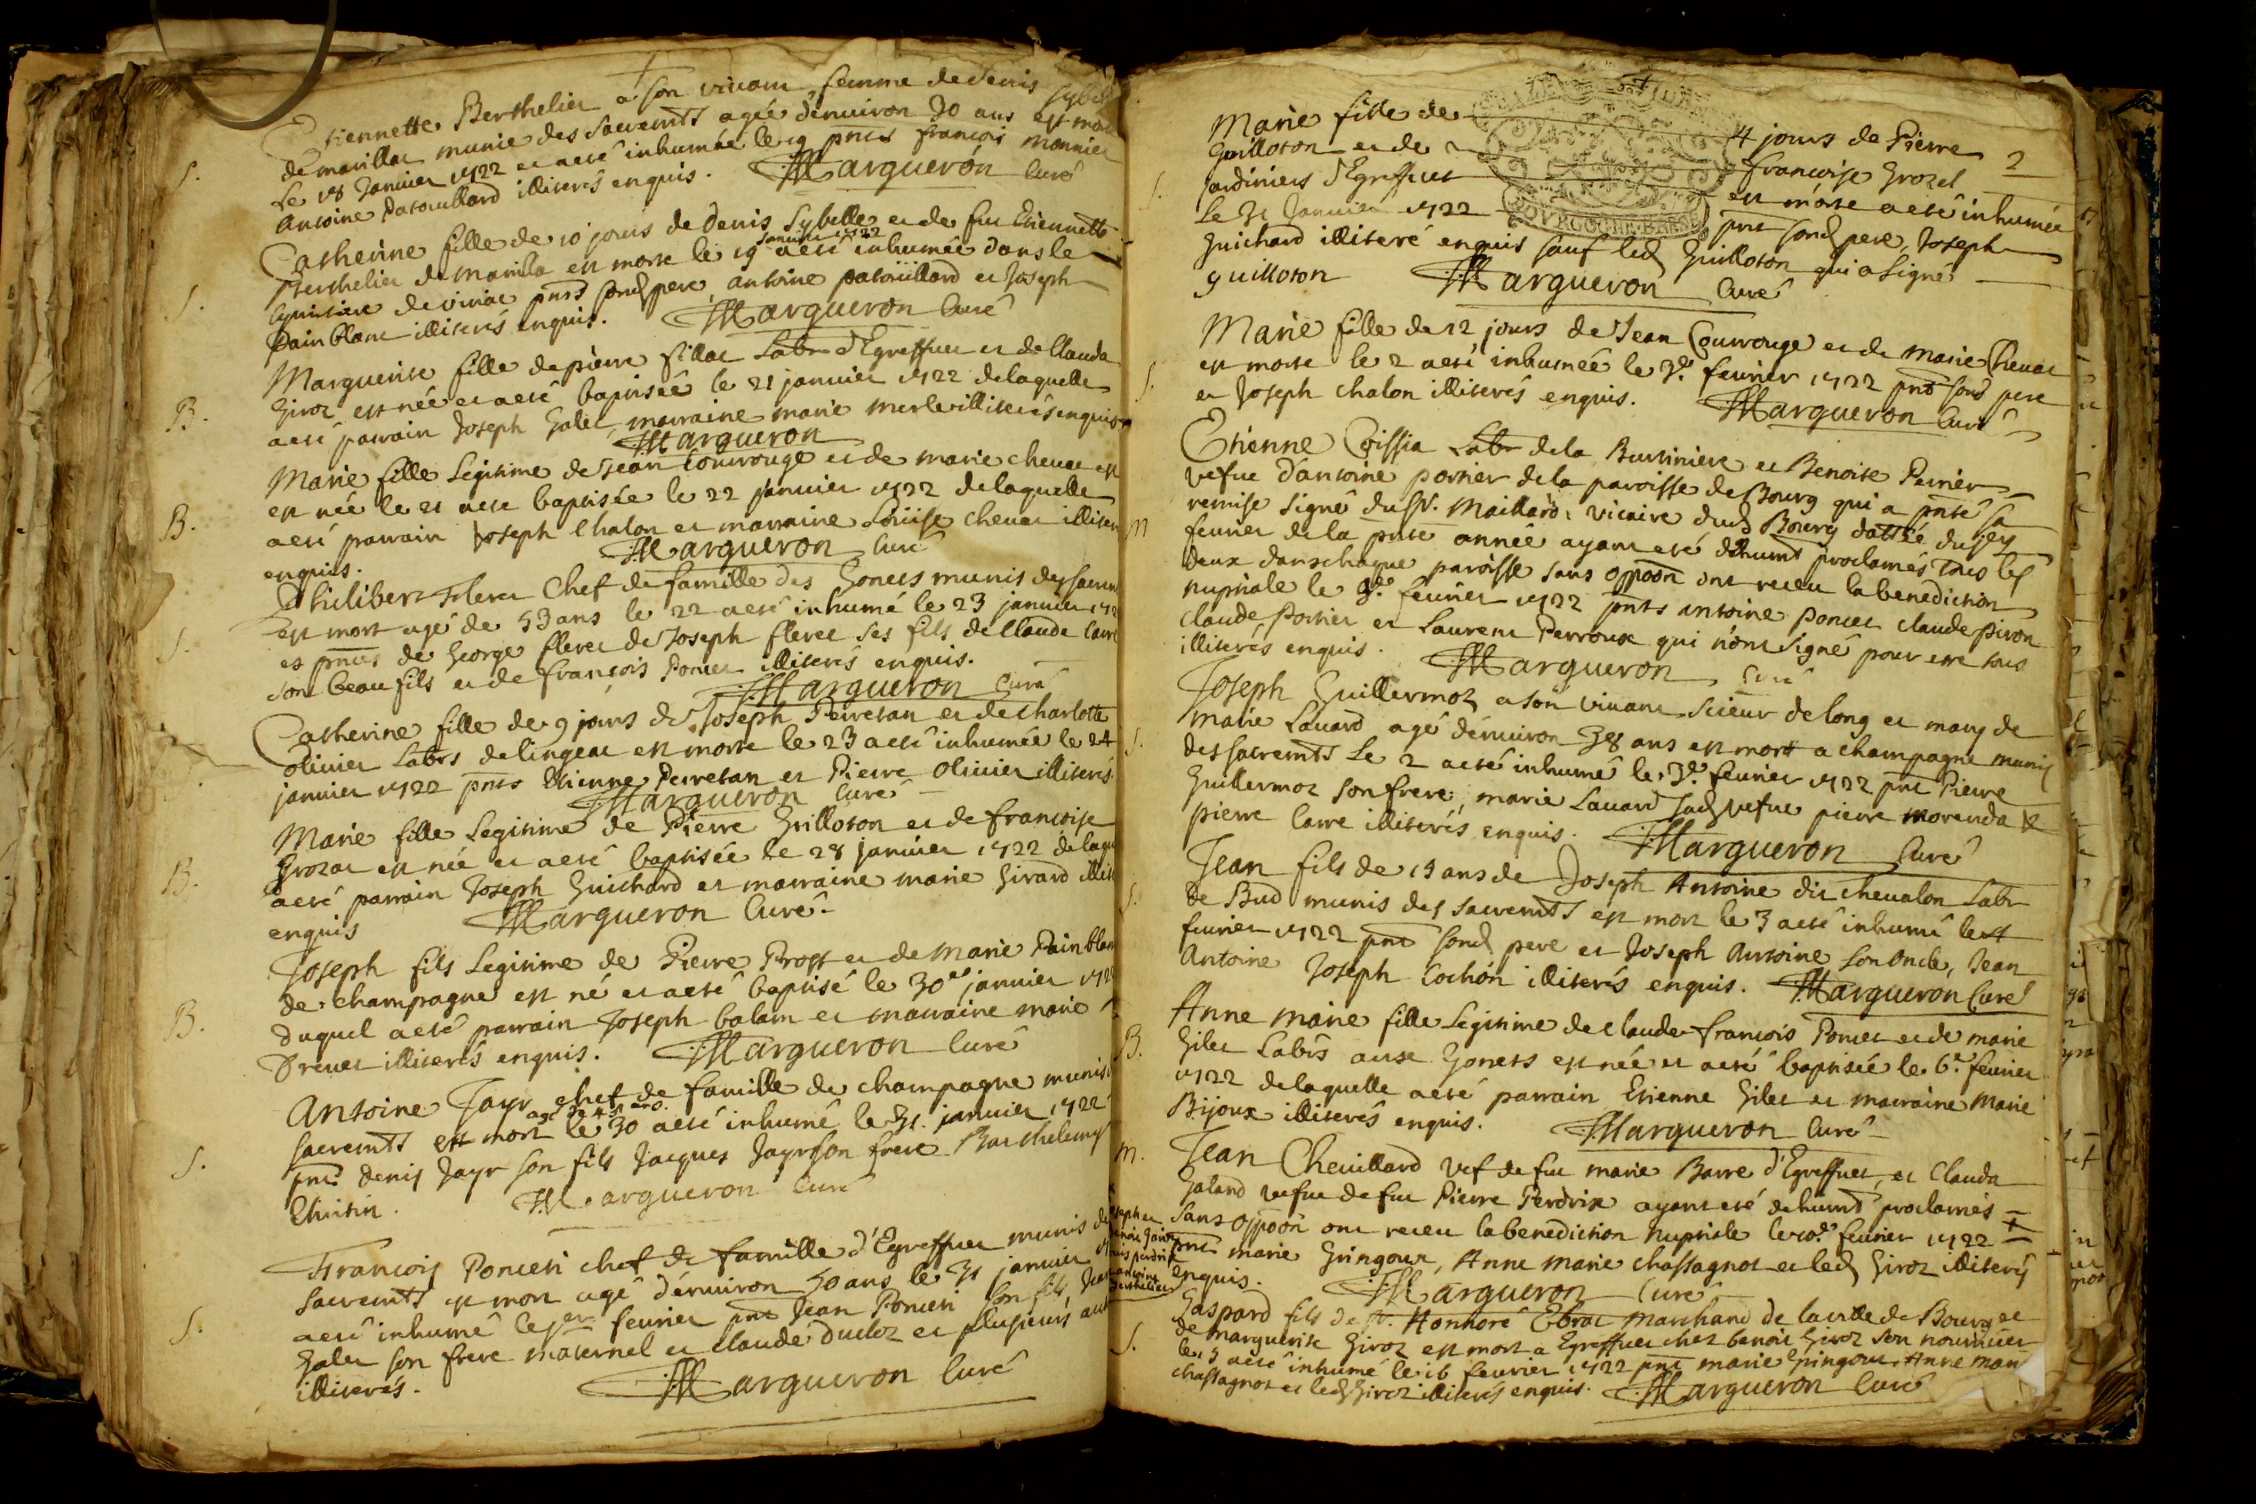 Etiennette Berthelier a son vivant femme de denis Sybelle
de marillat munie des sacremts agée denviron 30 ans est morte
le 18 Janvier 1722 et a eté inhumée le 19 pnts francois monnier
Antoine Patouillard illiterés enquis. Margueron Curé
S.
Catherine fille de 10 jours de denis Sybelle et de fue Etiennette
Berthelier de marilla est morte le 19 janvier 1722 a eté inhumée dans le
Cymitiere de viriat pnts sond pere, antoine patouillard et Joseph
Painblanc illiterés enquis. Margueron Curé
S.
Marguerite fille de pierre fillat Labr d'Egreffuet et de Clauda
Giroz est née et a eté baptisée le 21 janvier 1722 de laquelle
a eté parrain Joseph Galet marraine marie merle illiterés enquis
Margueron
B.
Marie fille Legitime de Jean Courrouge et de marie chevat
est née le 21 a eté baptisée le 22 janvier 1722 de laquelle
a eté parrain Joseph Chalon et marraine Loüise chevat illiterés
enquis. Margueron Curé
B.
Philibert fleret Chef de famille des Gonets munis des sacremts
est mort agé de 53 ans le 22 a eté inhumé le 23 janvier 1722
es pnces de George fleret de Joseph fleret ses fils de Claude Carre
son beau fils et de francois Poncet illiterés enquis.
Margueron Curé
S.
Catherine fille de 9 jours de Joseph Perretan et de Charlotte
Olivier Labrs de lingeat est morte le 23 a eté inhumée le 24
janvier 1722 pnts Etienne Perretan et Pierre Olivier illiterés
Margueron Curé
Marie fille Legitime de Pierre Guilloton et de francoise
Grozat est née et a eté baptisée le 28 janvier 1722 de laquelle
a eté parrain Joseph Guichard et marraine marie Girard illiterés
enquis Margueron Curé
B.
Joseph fils Legitime de Pierre Prost et de Marie Painblanc
de champagne est né et a eté baptisé le 30e janvier 1722
duquel a eté parrain Joseph balam et marraine marie
Drevet illiterés enquis. Margueron Curé
B.
Antoine Jayr chef de famille de champagne munis
agé de 45 ans.
sacremts est mort le 30 a eté inhumé le 31 janvier 1722
pnts denis Jayr son fils Jacques Jayr son frere Barthelemy
Chiktin. Margueron Curé
S.
Francois Ponceti chef de famille d'Egreffuet munis des
sacremts est mort agé d'environ 50 ans le 31 janvier
a eté inhumé le 1er fevrier pnts Jean Ponceti son fils, Jean
Galet son frere maternel et Claude Ducloz et plusieurs autres
illiterés. Margueron Curé
S.
2
Marie fille de 4 jours de Pierre
Guilloton et de francoise Grozel
jardiniers d'Egreffuet est morte a eté inhumée
Le 31 Janvier 1722 pnts sond pere, Joseph
Guichard illiteré enquis sauf led Guilloton qui a Signé
guilloton Margueron Curé
S.
Marie fille de 12 jours de Jean Courrouge et de marie Chevat
est morte le 2 a eté inhumée le 3e fevrier 1722 pnts sond pere
et Joseph chalon illiterés enquis. Margueron Curé
S.
Etienne Coissia Labr de la Burtiniere et Benoite Perrier
vefue d'antoine portier de la paroisse de Bourg qui a pnté sa
remise signé du Sr. Maillard vicaire dud Bourg dattée du 1er
fevrier de la pnte année ayant eté dehumt proclamés tous les
deux dans chaque paroisse sans oppoõn ont receu la benediction
nuptiale le 3e fevrier 1722 pnts antoine poncet claude piron
claude portier et Laurent Perroux qui n'ont signé pour etre tous
illiterés enquis. Margueron Curé
M
Joseph Guillermoz a son vivant scieur de long et mary de
marie Lauard agé denviron 38 ans est mort a champagne munis
des sacremts Le 2 a eté inhumé le 3e fevrier 1722 pnt Pierre
Guillermoz son frere, marie Lauard sad vefue pierre morenda &
pierre Carre illiterés enquis. Margueron Curé
S.
Jean fils de 15 ans de Joseph Antoine dit chevalon Labr
de Bud munis des sacremts est mort le 3 a eté inhumé le 4
fevrier 1722 pnt sond pere et Joseph Antoine son Oncle, Jean
Antoine Joseph Cochon illiterés enquis. Margueron Curé
S.
Anne marie fille Legitime de Claude francois Poncet et de marie
Gilet Labrs aux Gonets est née et a eté baptisée le 6e fevrier
1722 de laquelle a eté parrain Etienne Gilet et marraine Marie
Bijoux illiterés enquis. Margueron Curé
B.
Jean Chevillard vef de fue marie Barre d'Egreffuet, et Clauda
Galand vefue de fue Pierre Perdrix ayant eté dehumt proclamés
sans oppoõn ont receu la benediction Nuptiale le 10e fevrier 1722
pnts marie Gringoux, Anne marie chassagnot et led Giroz illiterés
enquis. Margueron Curé
M.
Gaspard fils de Sr. Honnoré Ebrat marchand de la ville de Bourg et
de marguerite Giroz est mort a Egreffuet chez benoit Giroz son nourricier
le 15 a eté inhumé le 16 fevrier 1722 pnt marie Gringoux, Anne marie
chassagnot et led Giroz illiterés enquis. Margueron Curé
S.